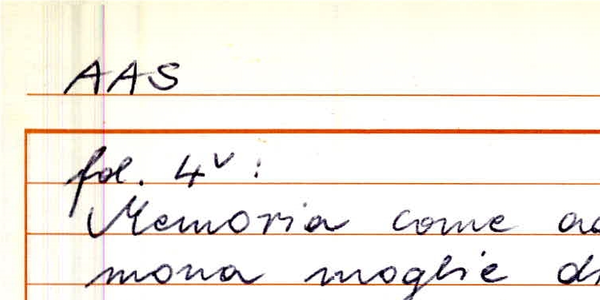 AAS
fol. 4v:
Memoria come
mona moglie di